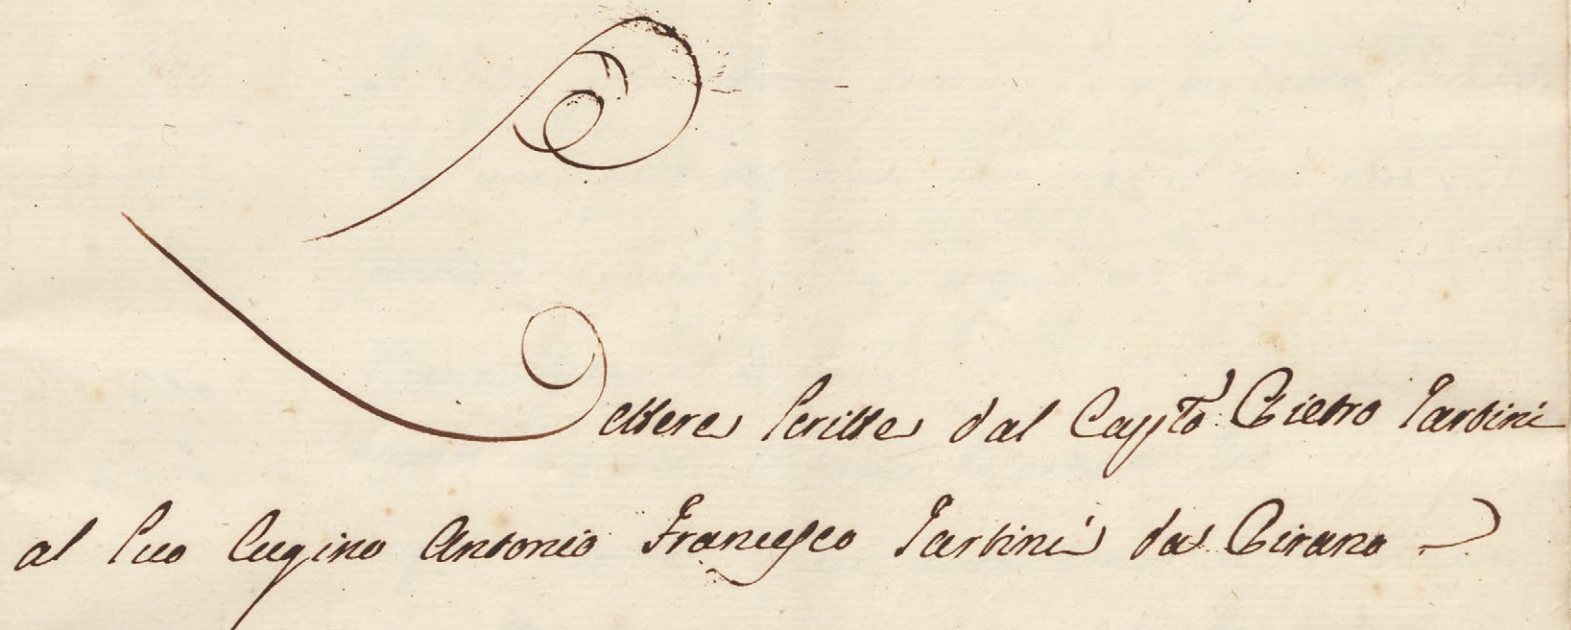 Lettere scritte dal Cap:to Pietro Tartini
al suo Cugino Antonio Francesco Tartini da Pirano